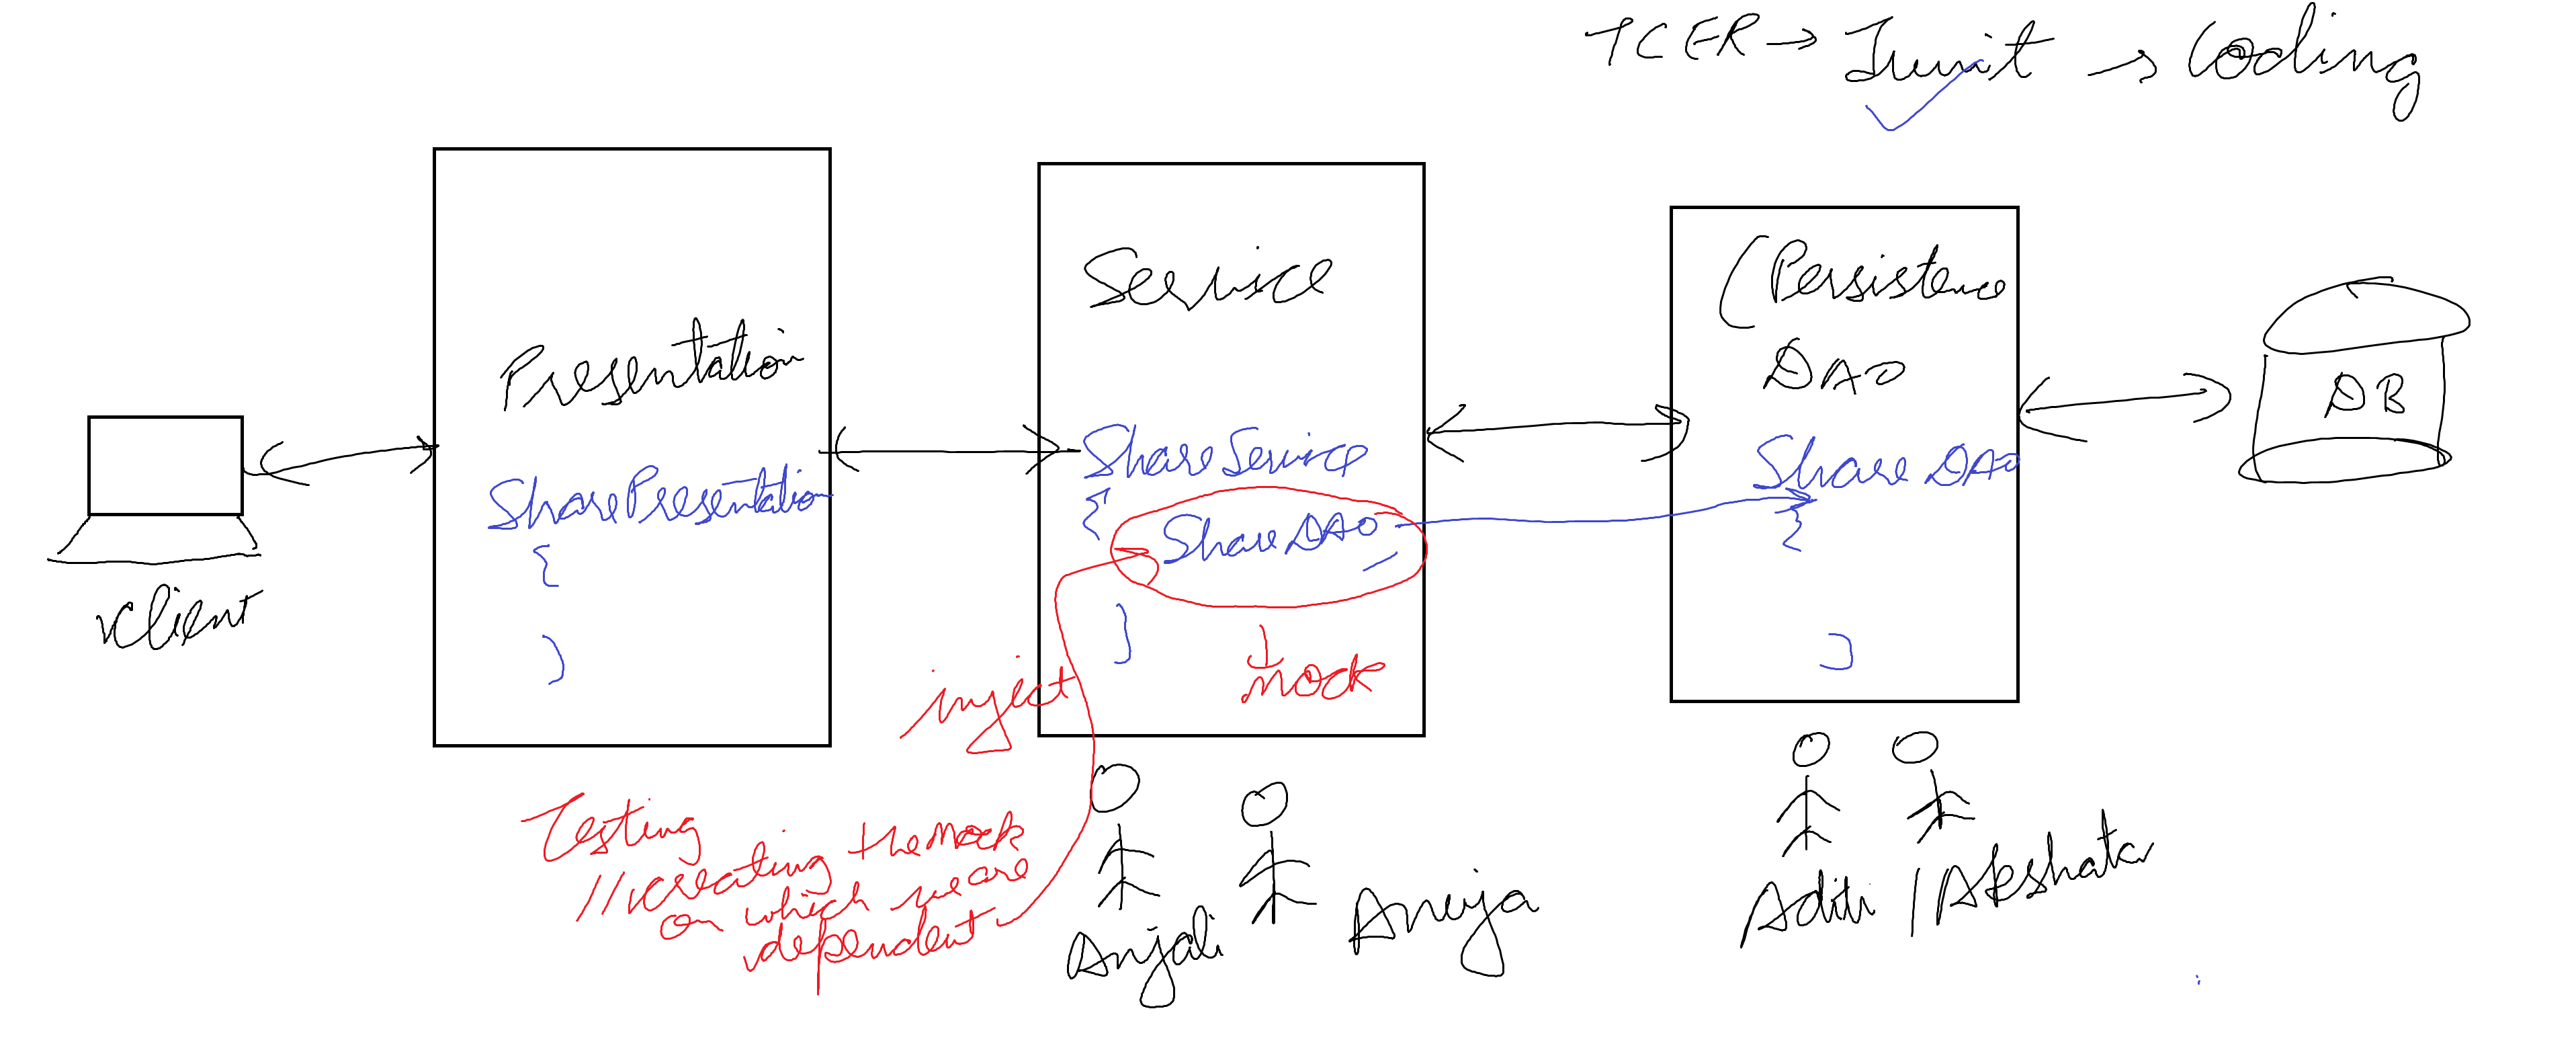 TCER → Junit → Coding
Client
Presentation
SharePresentation
{
}
Service
ShareService
{
ShareDAO
}
mock
inject
(Persistence
DAO
ShareDAO
{
}
DB
Testing
//creating the Mock
on which we are
dependent
Anjali
Anuja
Aditi / Akshata